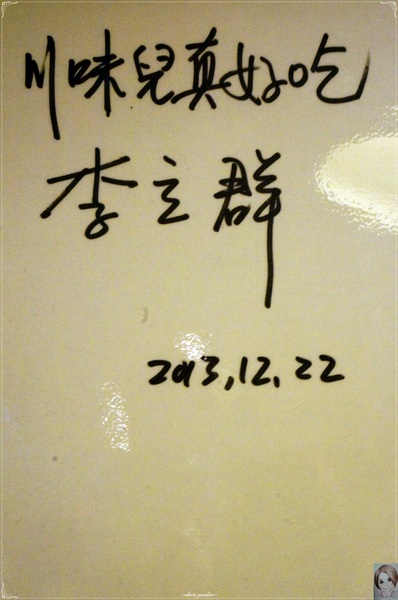 川味兒真好吃
李立群
2013.12.22